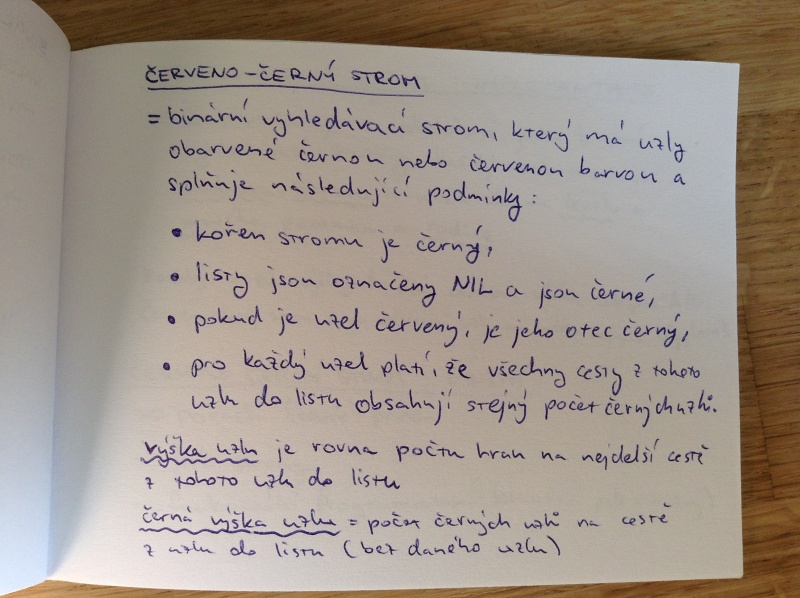 ČERVENO-ČERNÝ STROM
= binární vyhledávací strom, který má uzly
obarvené černou nebo červenou barvou a
splňuje následující podmínky:
• kořen stromu je černý,
• listy jsou označeny NIL a jsou černé,
• pokud je uzel červený, je jeho otec černý,
• pro každý uzel platí, že všechny cesty z tohoto
uzlu do listu obsahují stejný počet černých uzlů.
výška uzlu je rovna počtu hran na nejdelší cestě
z tohoto uzlu do listu
černá výška uzlu = počet černých uzlů na cestě
z uzlu do listu (bez daného uzlu)